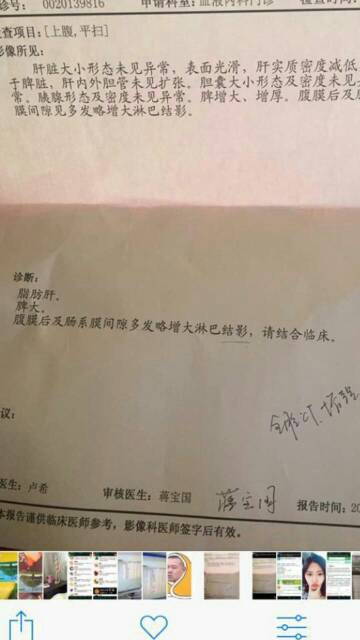 诊号: 0020139816 申请科室: 血液内科门诊 检查时间:
查项目:[上腹,平扫]
影像所见:
肝脏大小形态未见异常，表面光滑，肝实质密度减低
于脾脏，肝内外胆管未见扩张。胆囊大小形态及密度未见
常。胰腺形态及密度未见异常。脾增大、增厚。腹膜后及肠
膜间隙见多发略增大淋巴结影。
诊断:
脂肪肝。
脾大。
腹膜后及肠系膜间隙多发略增大淋巴结影，请结合临床。
议:
医生: 卢希 审核医生: 蒋宝国 蒋宝国 报告时间: 20
本报告谨供临床医师参考，影像科医师签字后有效。